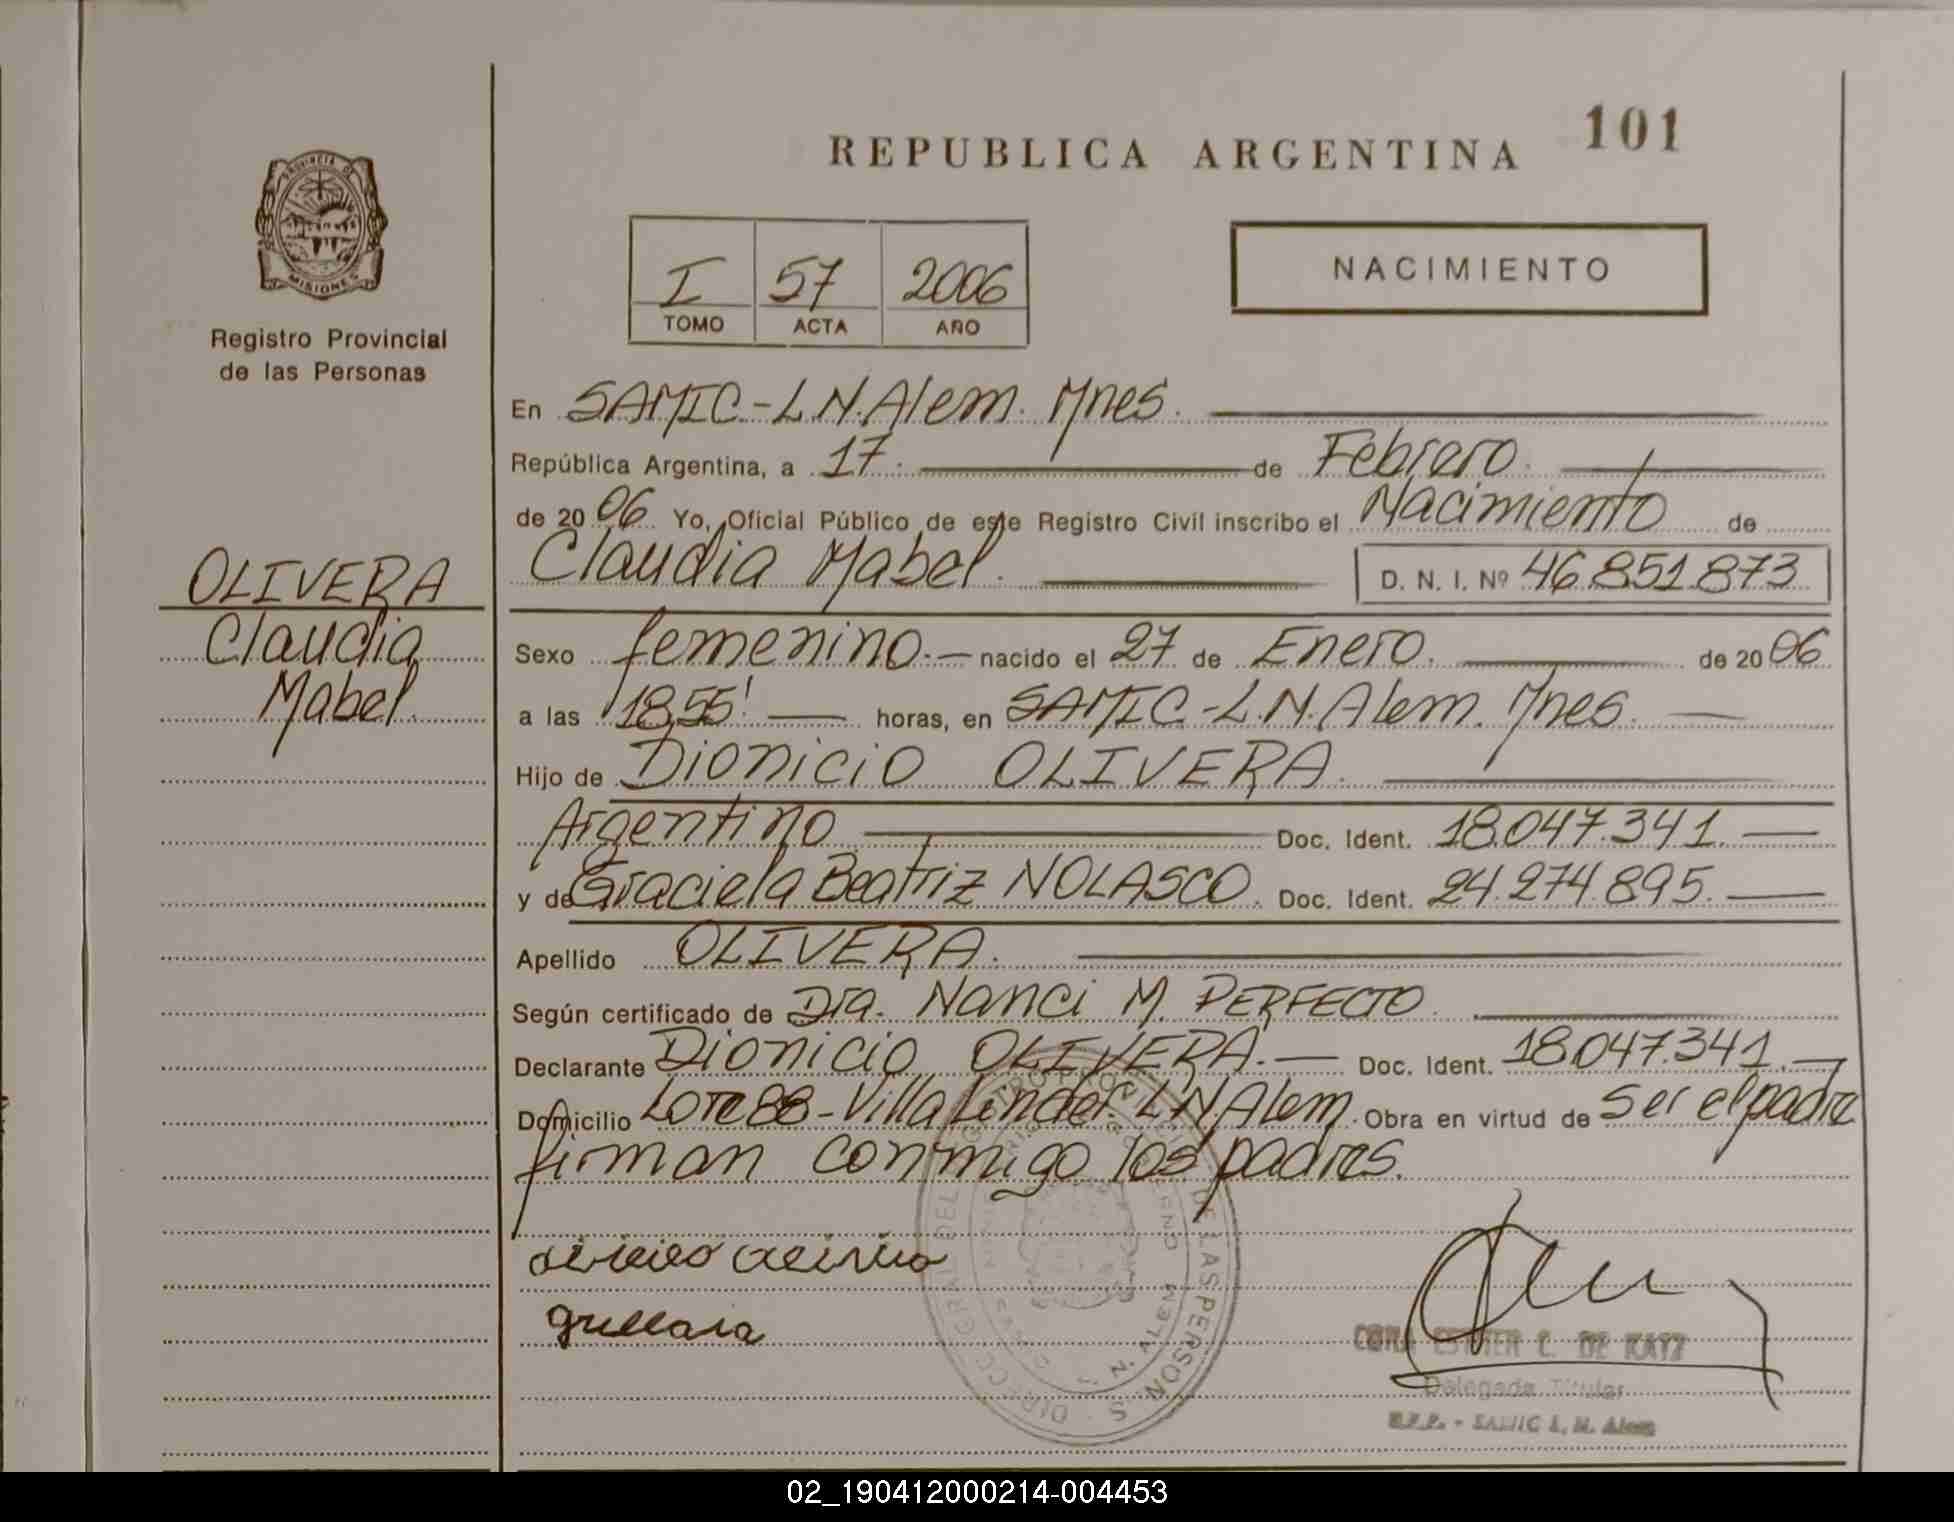 REPUBLICA ARGENTINA 101
PROVINCIA DE MISIONES
Registro Provincial
de las Personas
I 57 2006
TOMO ACTA AÑO
NACIMIENTO
OLIVERA
Claudia
Mabel.
En SAMIC-L.N.Alem. Mnes.
República Argentina, a 17. de Febrero.
de 2006 Yo, Oficial Público de este Registro Civil inscribo el Nacimiento de
Claudia Mabel. D. N. I. Nº 46.851.873
Sexo femenino.- nacido el 27 de Enero. de 2006
a las 18,55' horas, en SAMIC-L.N.Alem. Mnes.
Hijo de Dionicio OLIVERA.
Argentino Doc. Ident. 18.047.341.
y de Graciela Beatriz NOLASCO. Doc. Ident. 24.274.895.
Apellido OLIVERA.
Según certificado de Dra. Nanci M. PERFECTO
Declarante Dionicio OLIVERA. Doc. Ident. 18.047.341.
Domicilio Lote 88-Villa Linder. L.N.Alem. Obra en virtud de ser el padre
firman conmigo los padres.
CORA ESTHER C. DE KATZ
Delegada Titular
R.P.P. - SAMIC L. N. Alem
02_190412000214-004453